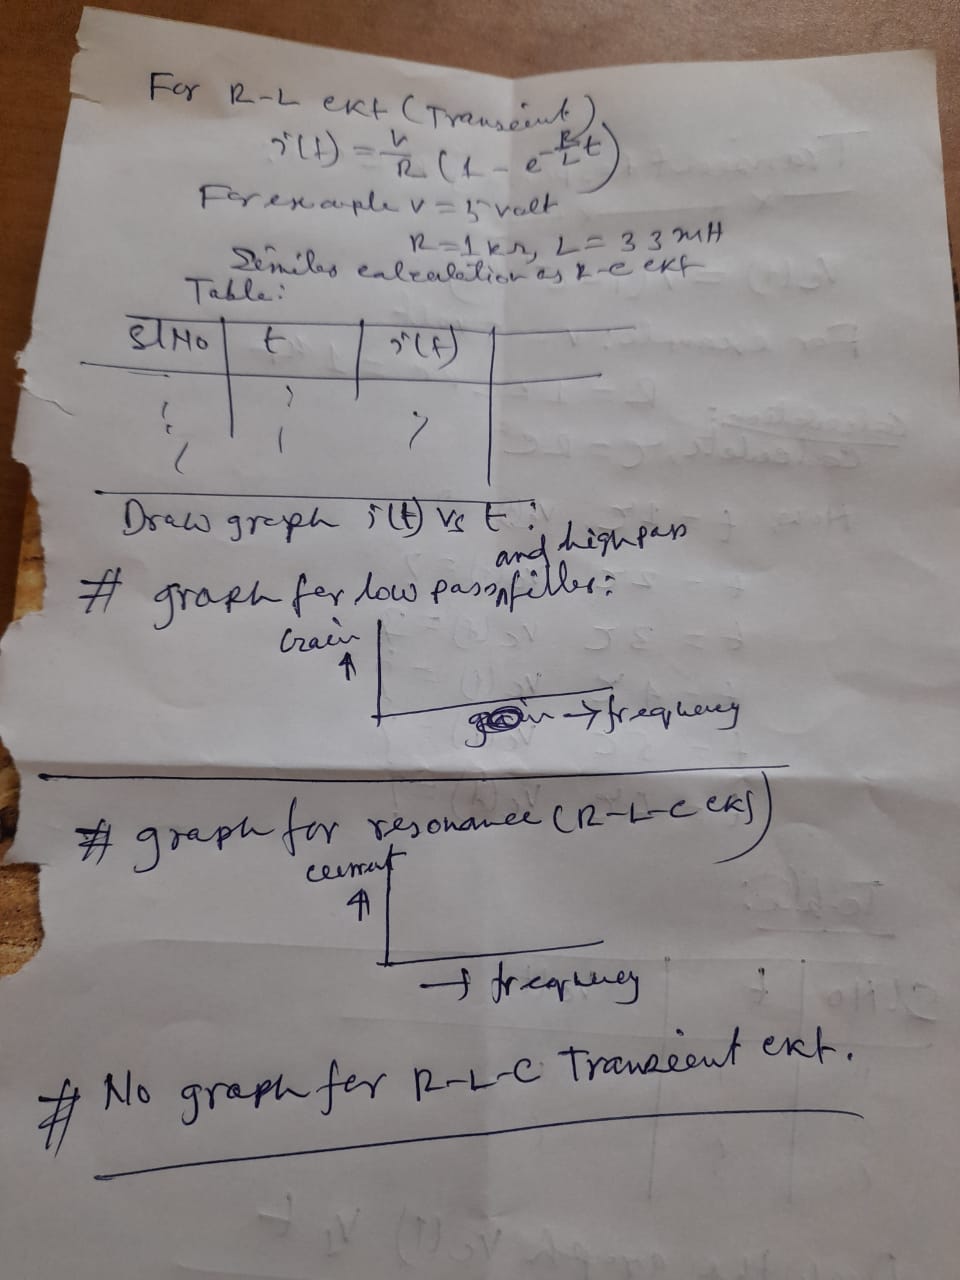 For R-L ckt (Transcient)
i(t) = V/R (1 - e^-R/L t)
For example V = 5 volt
R = 1 kΩ, L = 33 mH
Similar calculation as R-C ckt
Table:
Sl No t i(t)
Draw graph i(t) vs t :
and high pass
# graph for low pass filter:
Gain
→ frequency
# graph for resonance (R-L-C ckt)
current
→ frequency
# No graph for R-L-C Transcient ckt.